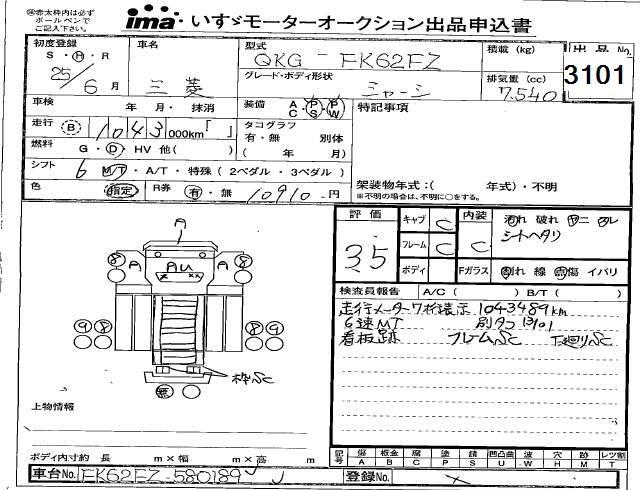 ㊟赤太枠内は必ず
ボールペンで
ご記入下さい。
ima いすゞモーターオークション出品申込書
初度登録 S・H・R 25年 6月
車名 三菱
型式 QKG-FK62FZ
グレード・ボディ形状 シャーシ
積載(kg)
排気量(cc) 7.540
出品No. 3101
車検 年 月・抹消
装備 AC・PS・PW
特記事項
走行 B 1043 000km「 」
タコグラフ 有・無 別体 ( 年 月)
燃料 G・D・HV 他( )
シフト 6 M/T・A/T・特殊(2ペダル・3ペダル)
架装物年式:( 年式)・不明
※不明の場合は、不明に○をする。
色 指定
R券 有・無 10910円
評価 3.5
キャブ C
内装 C
フレーム C
ボディ
Fガラス
汚れ 破れ ヤニ スレ
シートヘタリ
割れ 線 点傷 イバリ
検査員報告 A/C( ) B/T( )
走行メーター7桁表示 1043489km
6速MT 別タコ
看板跡 フレームSC 下廻りSC
A
8 A AU A 8
9 8 8 9
枠SC
上物情報
ボディ内寸約 長 m×幅 m×高 m
記号 傷A 板金B 腐C 塗P 錆S 凹凸曲U 波W 穴H 跡M レツ割T
車台No. FK62FZ-580189
登録No.